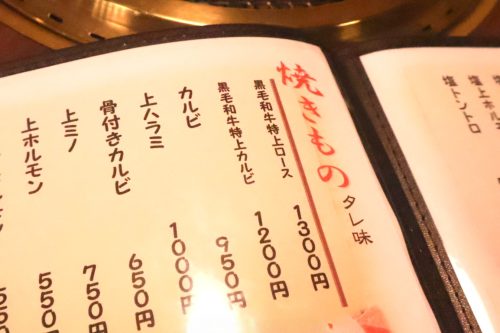 塩上ホル
塩トントロ
焼きもの タレ味
黒毛和牛特上ロース 1300円
黒毛和牛特上カルビ 1200円
カルビ 950円
上ハラミ 1000円
骨付きカルビ 650円
上ミノ 750円
上ホルモン 550円